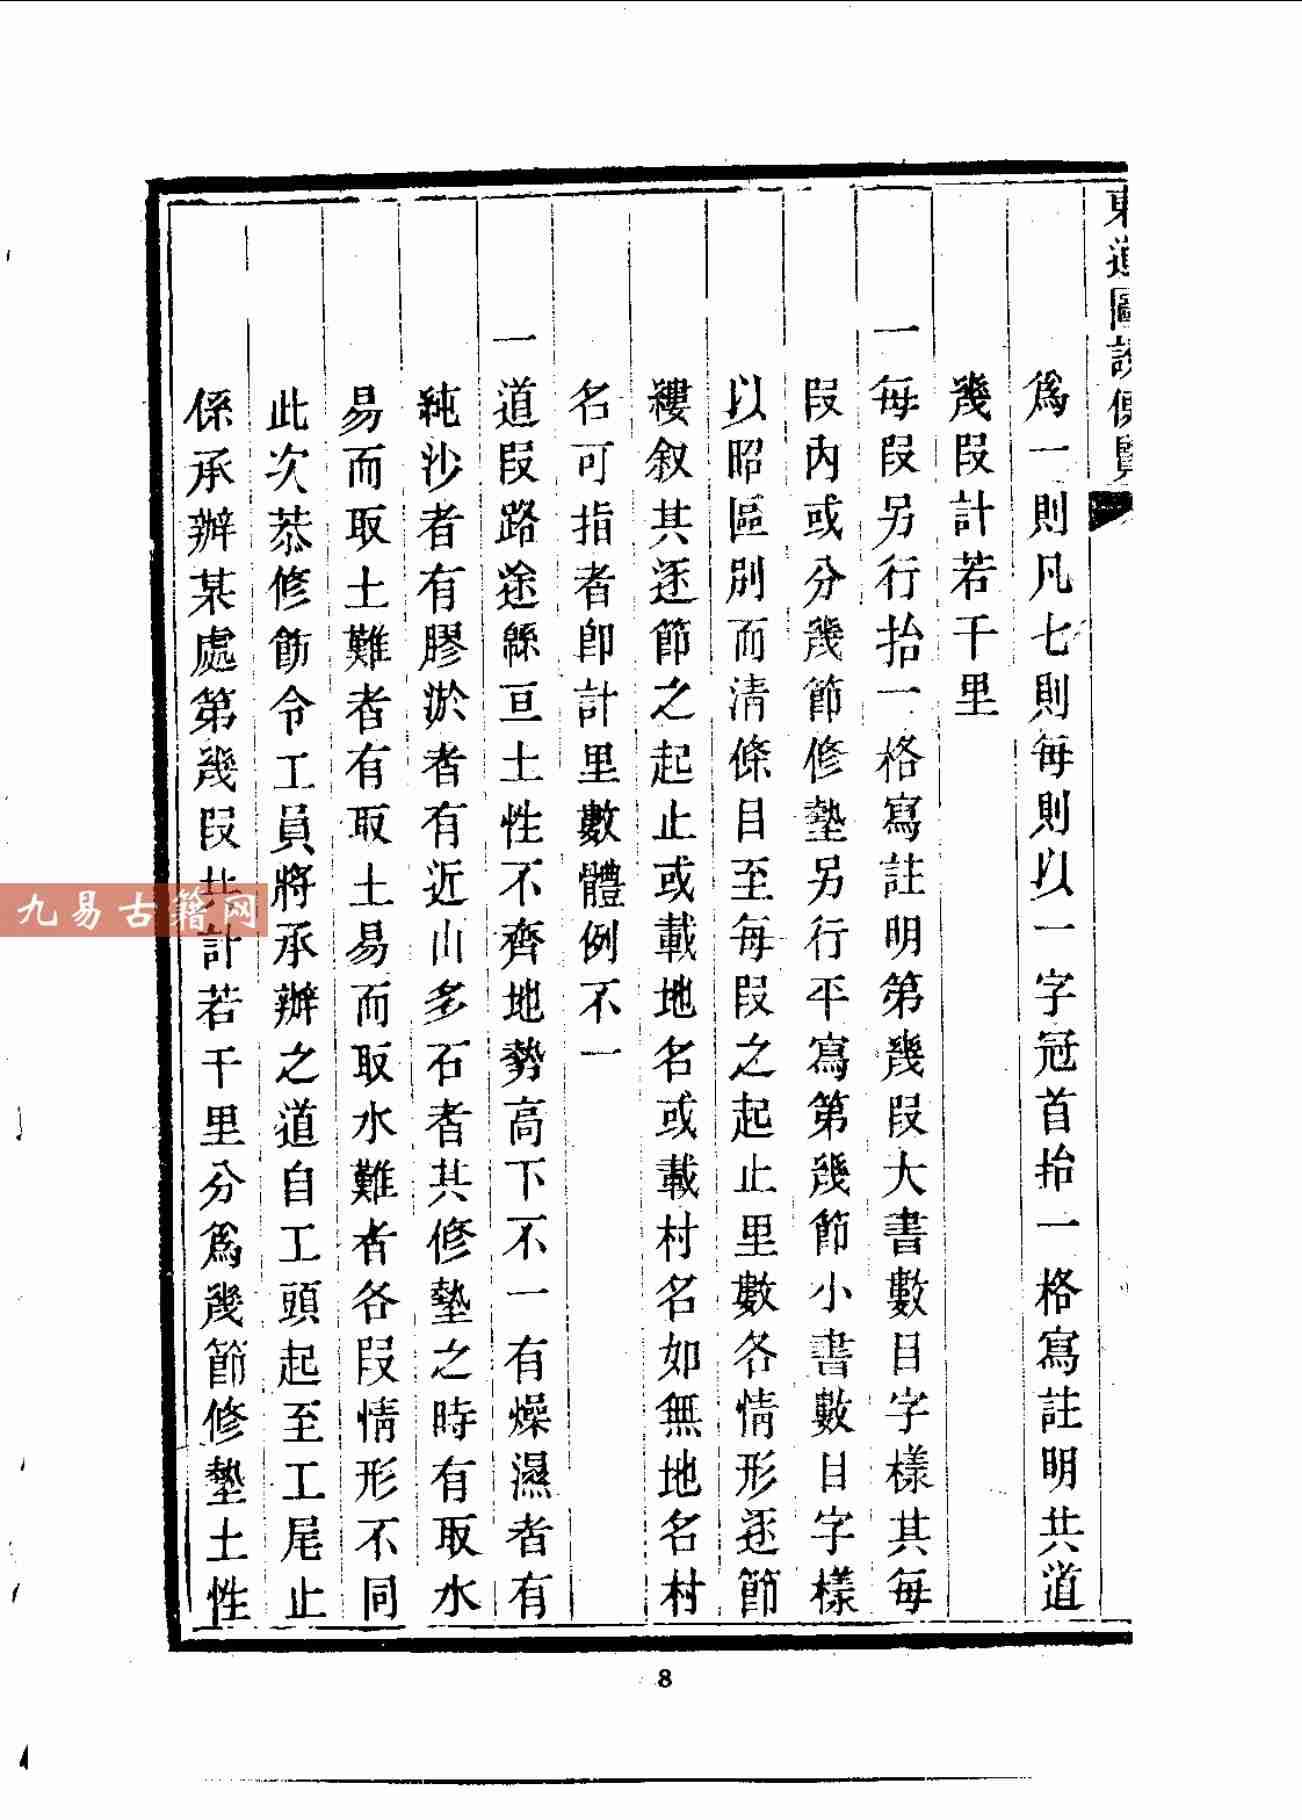 東道圖説便覽
爲一則凡七則每則以一字冠首抬一格寫註明共道
幾段計若干里
一每段另行抬一格寫註明第幾段大書數目字樣其每
段内或分幾節修墊另行平寫第幾節小書數目字樣
以昭區別而清條目至每段之起止里數各情形逐節
縷叙其逐節之起止或載地名或載村名如無地名村
名可指者卽計里數體例不一
一道段路途緜亘土性不齊地勢高下不一有燥濕者有
純沙者有膠淤者有近山多石者其修墊之時有取水
易而取土難者有取土易而取水難者各段情形不同
此次恭修飭令工員將承辦之道自工頭起至工尾止
係承辦某處第幾段共計若干里分爲幾節修墊土性
九易古籍网
8